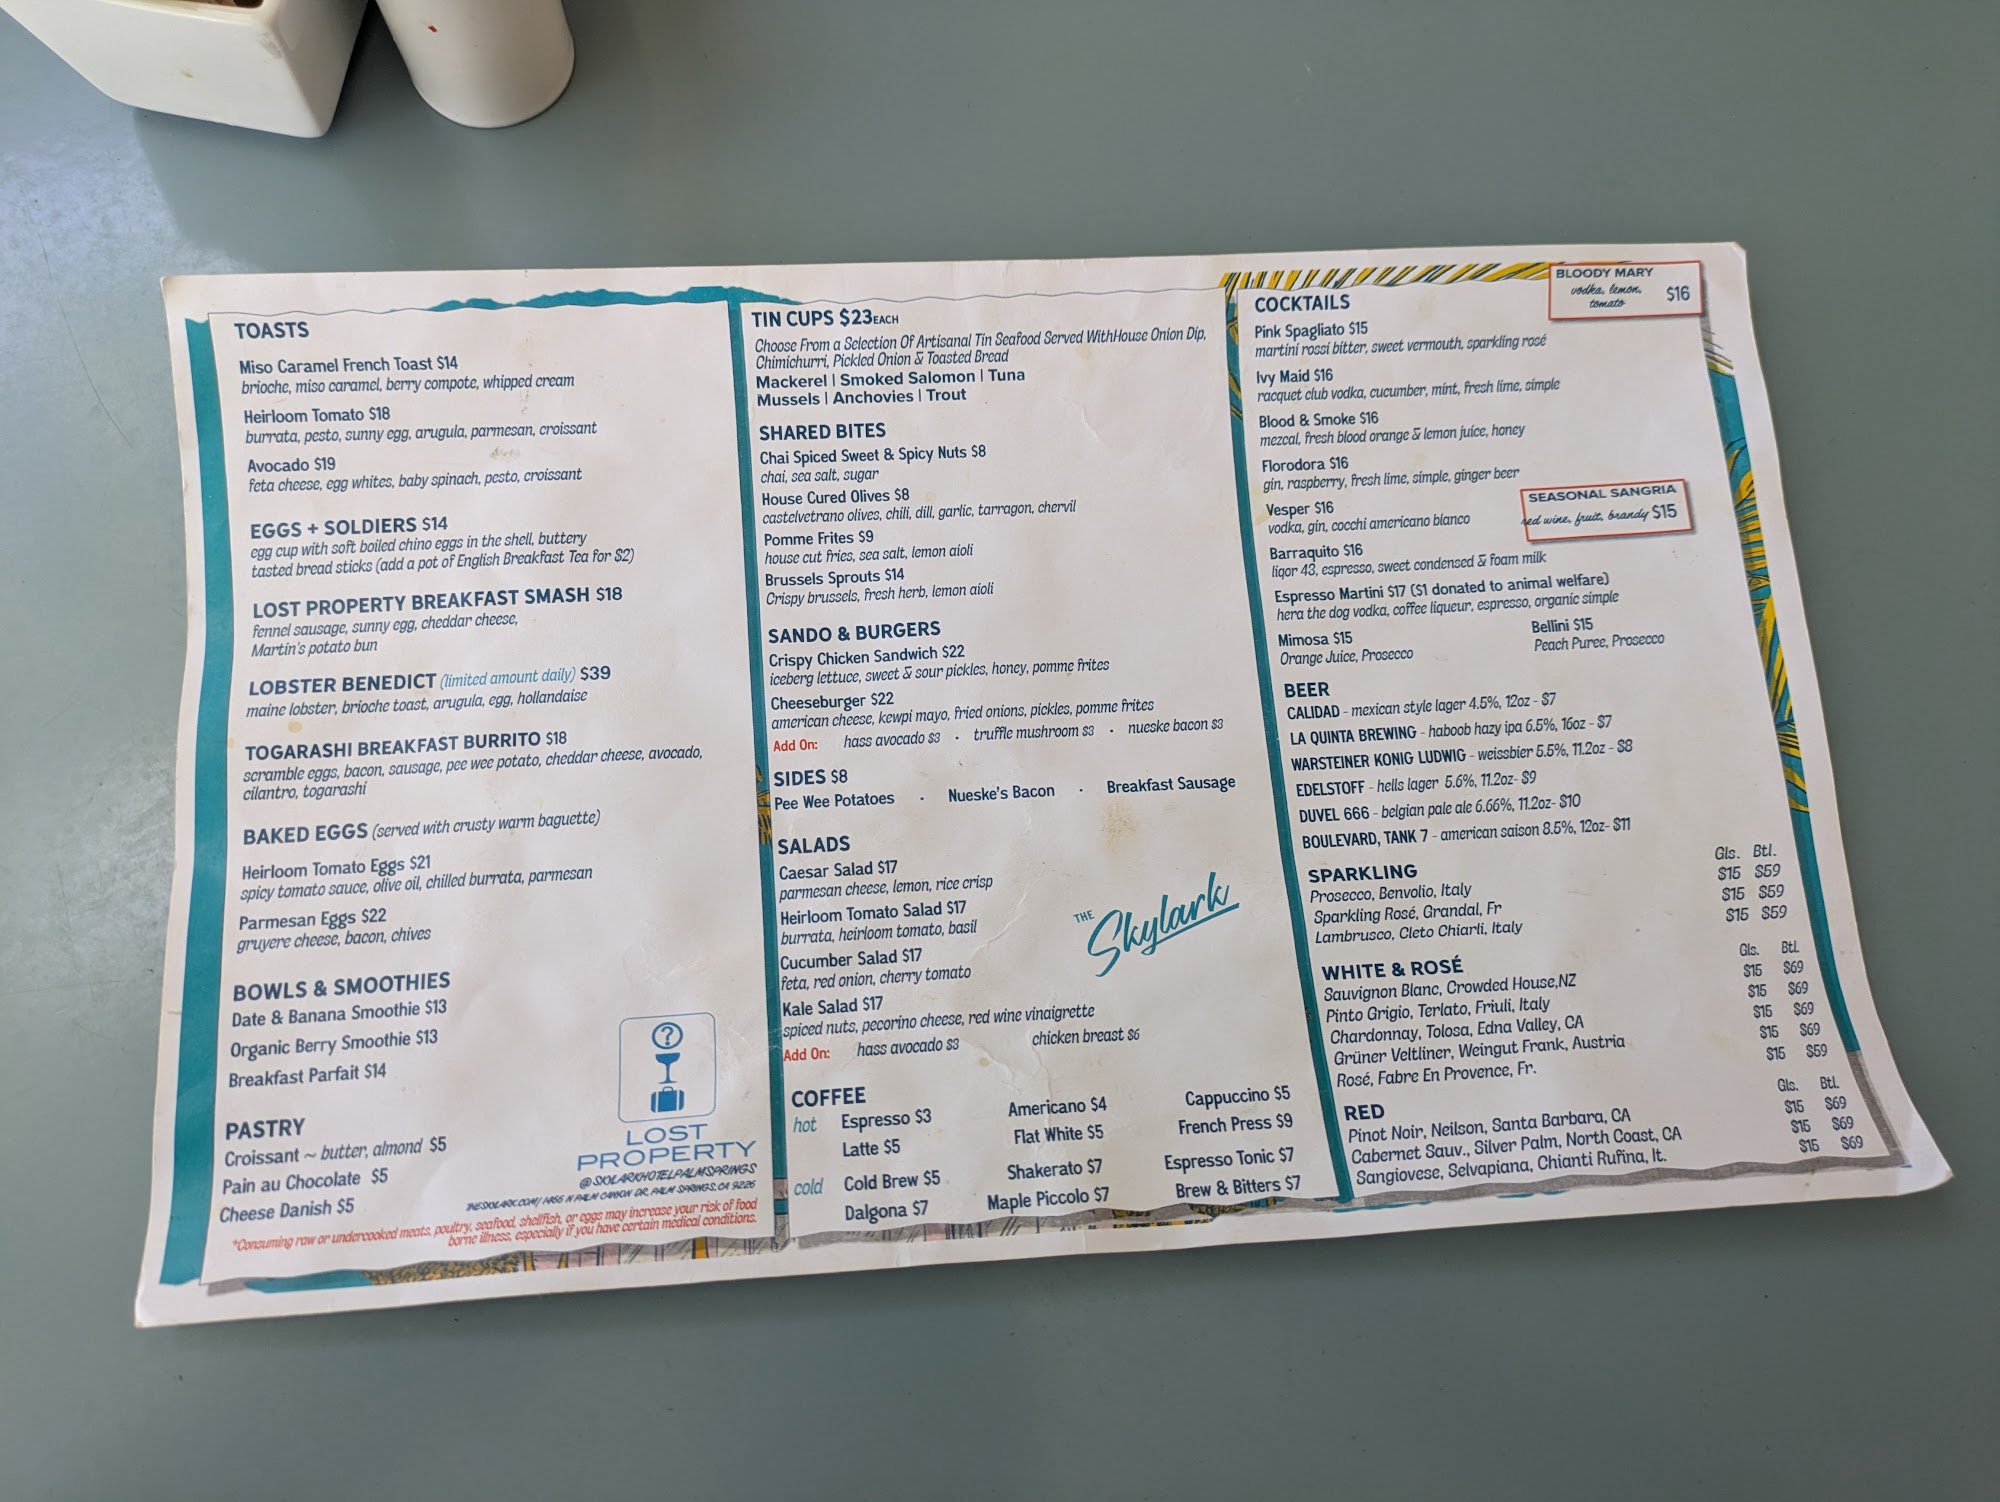 TOASTS
Miso Caramel French Toast $14
brioche, miso caramel, berry compote, whipped cream
Heirloom Tomato $18
burrata, pesto, sunny egg, arugula, parmesan, croissant
Avocado $19
feta cheese, egg whites, baby spinach, pesto, croissant
EGGS + SOLDIERS $14
egg cup with soft boiled chino eggs in the shell, buttery
tasted bread sticks (add a pot of English Breakfast Tea for $2)
LOST PROPERTY BREAKFAST SMASH $18
fennel sausage, sunny egg, cheddar cheese,
Martin's potato bun
LOBSTER BENEDICT (limited amount daily) $39
maine lobster, brioche toast, arugula, egg, hollandaise
TOGARASHI BREAKFAST BURRITO $18
scramble eggs, bacon, sausage, pee wee potato, cheddar cheese, avocado,
cilantro, togarashi
BAKED EGGS (served with crusty warm baguette)
Heirloom Tomato Eggs $21
spicy tomato sauce, olive oil, chilled burrata, parmesan
Parmesan Eggs $22
gruyere cheese, bacon, chives
BOWLS & SMOOTHIES
Date & Banana Smoothie $13
Organic Berry Smoothie $13
Breakfast Parfait $14
PASTRY
Croissant ~ butter, almond $5
Pain au Chocolate $5
Cheese Danish $5
?
LOST
PROPERTY
@SKYLARKHOTELPALMSPRINGS
THESKYLARK.COM/ 1466 N PALM CANYON DR, PALM SPRINGS, CA 9226
*Consuming raw or undercooked meats, poultry, seafood, shellfish, or eggs may increase your risk of food
borne illness, especially if you have certain medical conditions.
TIN CUPS $23EACH
Choose From a Selection Of Artisanal Tin Seafood Served WithHouse Onion Dip,
Chimichurri, Pickled Onion & Toasted Bread
Mackerel | Smoked Salomon | Tuna
Mussels | Anchovies | Trout
SHARED BITES
Chai Spiced Sweet & Spicy Nuts $8
chai, sea salt, sugar
House Cured Olives $8
castelvetrano olives, chili, dill, garlic, tarragon, chervil
Pomme Frites $9
house cut fries, sea salt, lemon aioli
Brussels Sprouts $14
Crispy brussels, fresh herb, lemon aioli
SANDO & BURGERS
Crispy Chicken Sandwich $22
iceberg lettuce, sweet & sour pickles, honey, pomme frites
Cheeseburger $22
american cheese, kewpi mayo, fried onions, pickles, pomme frites
Add On: hass avocado $3 · truffle mushroom $3 · nueske bacon $3
SIDES $8
Pee Wee Potatoes · Nueske's Bacon · Breakfast Sausage
SALADS
Caesar Salad $17
parmesan cheese, lemon, rice crisp
Heirloom Tomato Salad $17
burrata, heirloom tomato, basil
Cucumber Salad $17
feta, red onion, cherry tomato
Kale Salad $17
spiced nuts, pecorino cheese, red wine vinaigrette
Add On: hass avocado $3 chicken breast $6
THE Skylark
COFFEE
hot Espresso $3 Americano $4 Cappuccino $5
Latte $5 Flat White $5 French Press $9
cold Cold Brew $5 Shakerato $7 Espresso Tonic $7
Dalgona $7 Maple Piccolo $7 Brew & Bitters $7
COCKTAILS
BLOODY MARY
vodka, lemon,
tomato $16
Pink Spagliato $15
martini rossi bitter, sweet vermouth, sparkling rosé
Ivy Maid $16
racquet club vodka, cucumber, mint, fresh lime, simple
Blood & Smoke $16
mezcal, fresh blood orange & lemon juice, honey
Florodora $16
gin, raspberry, fresh lime, simple, ginger beer
Vesper $16
vodka, gin, cocchi americano blanco
SEASONAL SANGRIA
red wine, fruit, brandy $15
Barraquito $16
liqor 43, espresso, sweet condensed & foam milk
Espresso Martini $17 ($1 donated to animal welfare)
hera the dog vodka, coffee liqueur, espresso, organic simple
Mimosa $15 Bellini $15
Orange Juice, Prosecco Peach Puree, Prosecco
BEER
CALIDAD - mexican style lager 4.5%, 12oz - $7
LA QUINTA BREWING - haboob hazy ipa 6.5%, 16oz - $7
WARSTEINER KONIG LUDWIG - weissbier 5.5%, 11.2oz - $8
EDELSTOFF - hells lager 5.6%, 11.2oz- $9
DUVEL 666 - belgian pale ale 6.66%, 11.2oz- $10
BOULEVARD, TANK 7 - american saison 8.5%, 12oz- $11
SPARKLING Gls. Btl.
Prosecco, Benvolio, Italy $15 $59
Sparkling Rosé, Grandal, Fr $15 $59
Lambrusco, Cleto Chiarli, Italy $15 $59
WHITE & ROSÉ Gls. Btl.
Sauvignon Blanc, Crowded House,NZ $15 $69
Pinto Grigio, Terlato, Friuli, Italy $15 $69
Chardonnay, Tolosa, Edna Valley, CA $15 $69
Grüner Veltliner, Weingut Frank, Austria $15 $69
Rosé, Fabre En Provence, Fr. $15 $59
RED Gls. Btl.
Pinot Noir, Neilson, Santa Barbara, CA $15 $69
Cabernet Sauv., Silver Palm, North Coast, CA $15 $69
Sangiovese, Selvapiana, Chianti Rufina, It. $15 $69